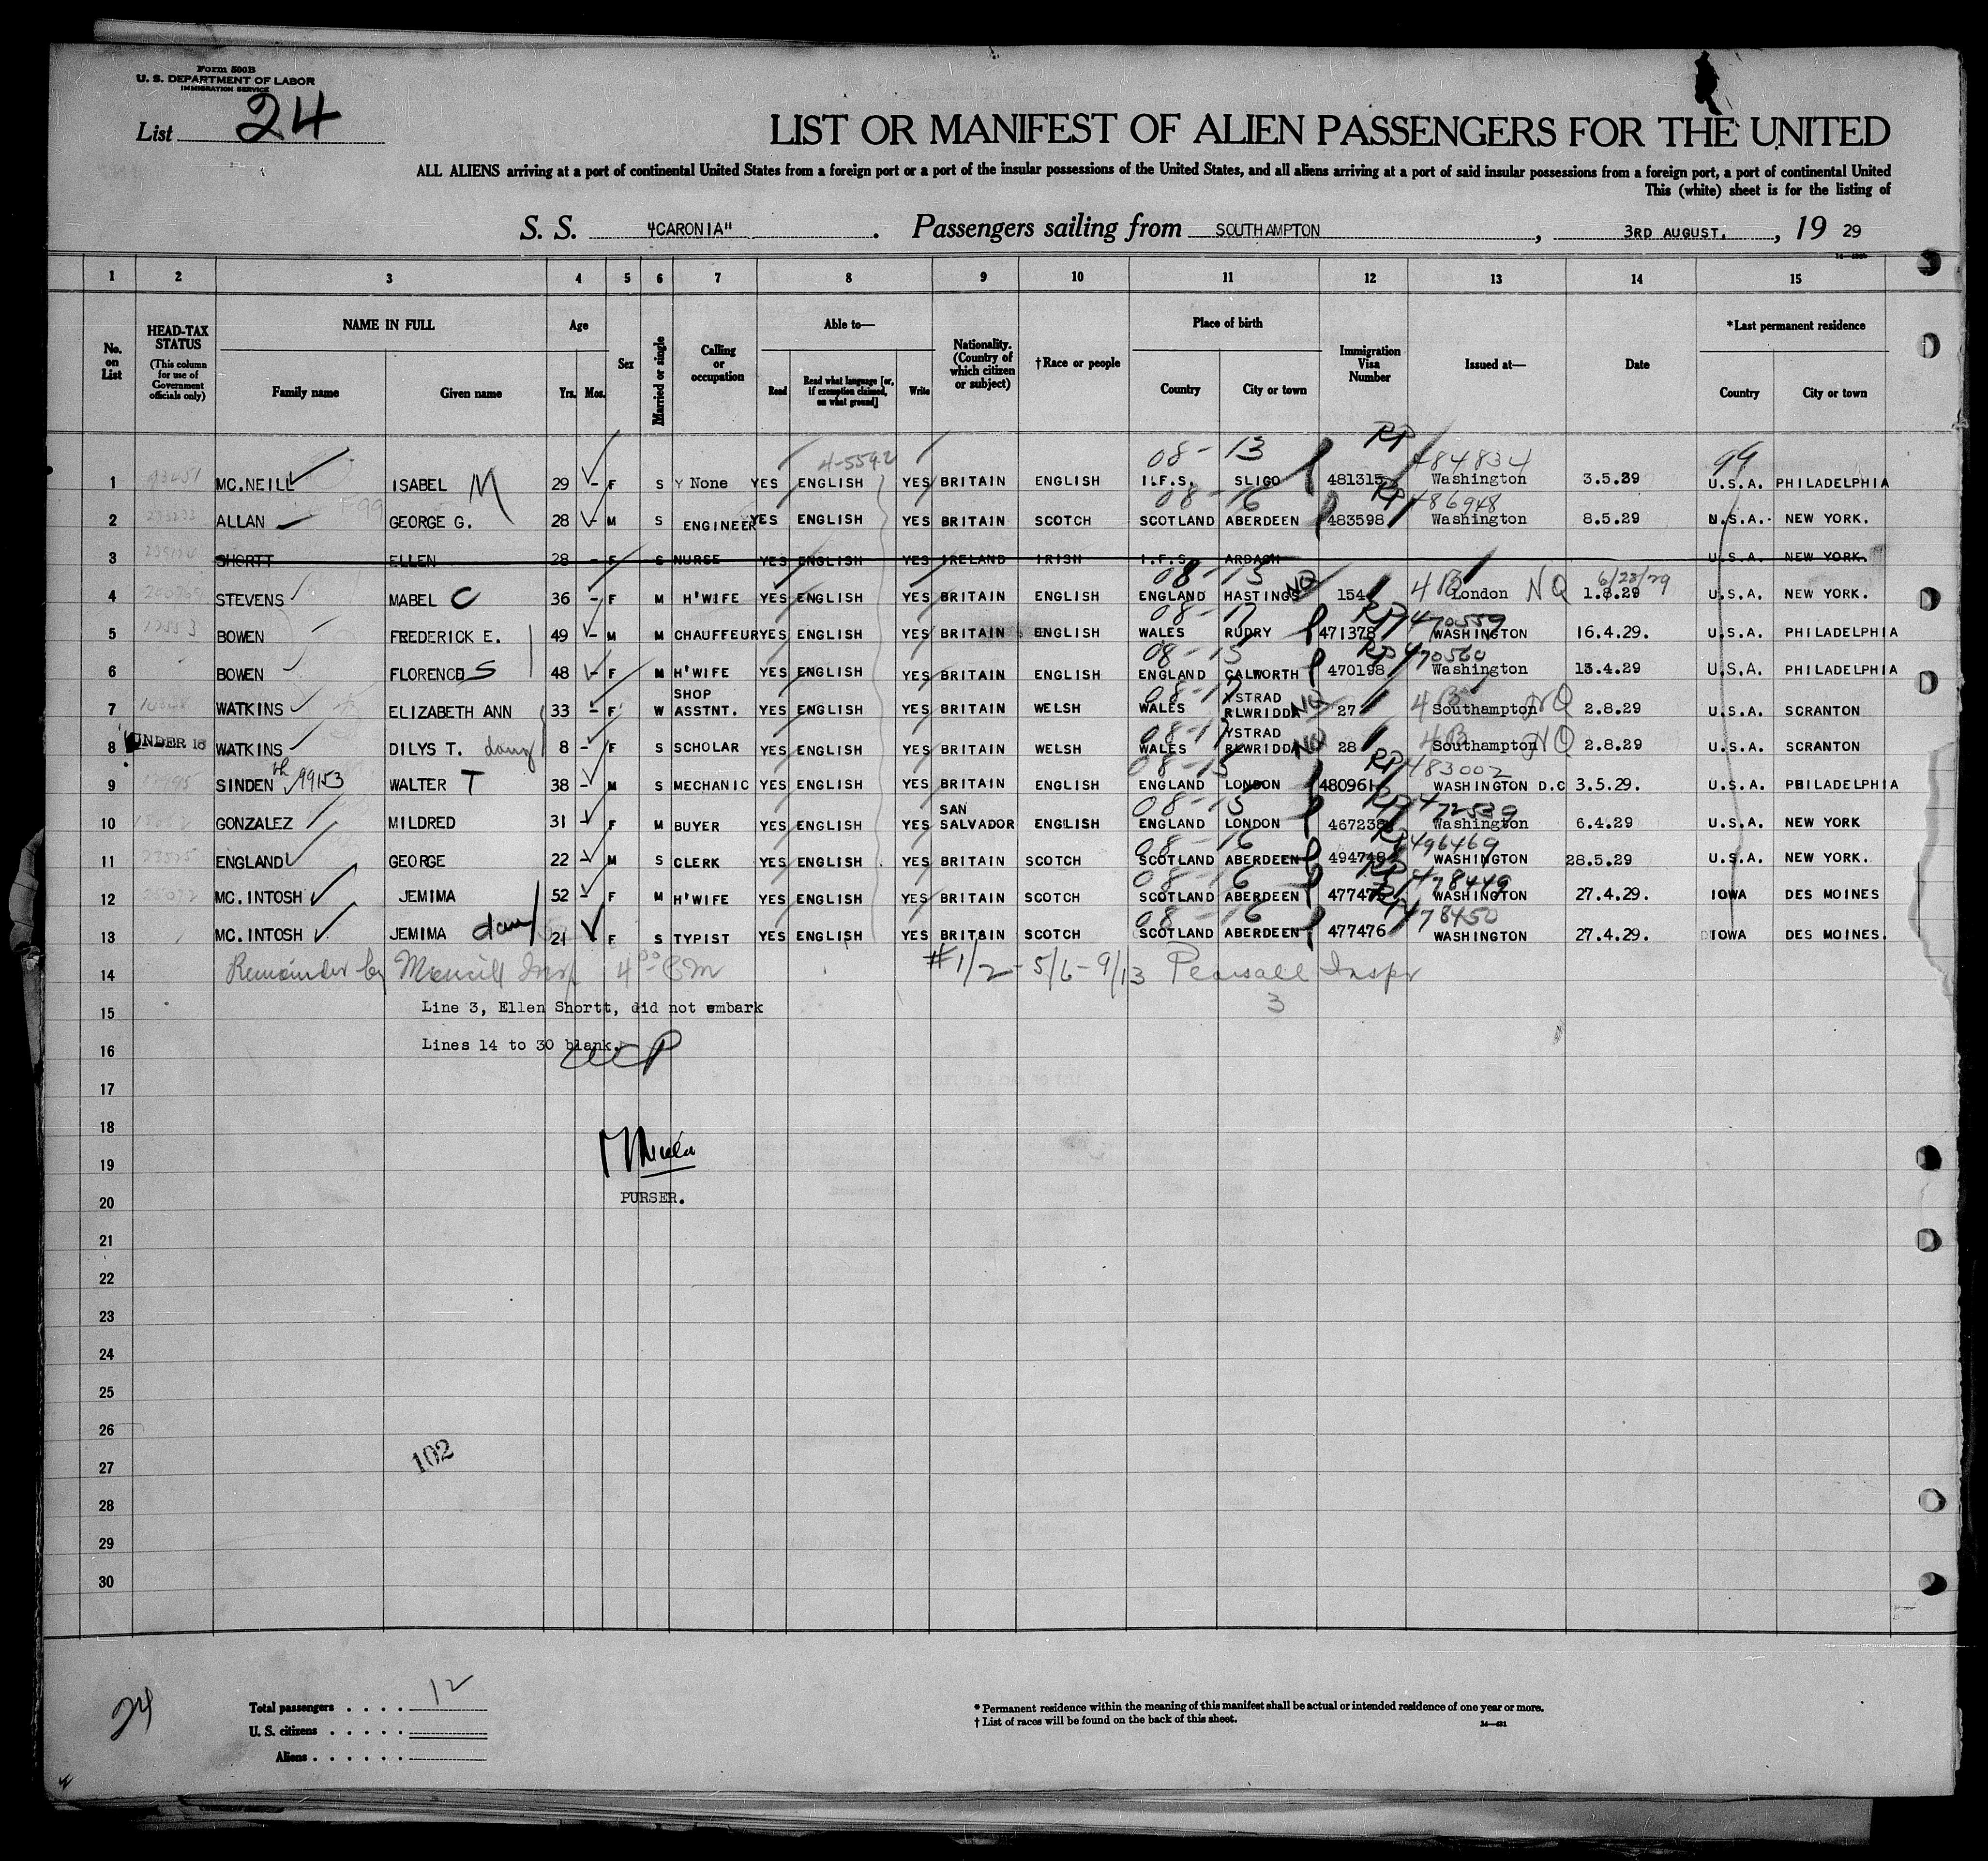 Form 500B
U. S. DEPARTMENT OF LABOR
IMMIGRATION SERVICE
List 24
LIST OR MANIFEST OF ALIEN PASSENGERS FOR THE UNITED
ALL ALIENS arriving at a port of continental United States from a foreign port or a port of the insular possessions of the United States, and all aliens arriving at a port of said insular possessions from a foreign port, a port of continental United
This (white) sheet is for the listing of
S. S. "CARONIA" . Passengers sailing from SOUTHAMPTON , 3RD AUGUST. , 19 29
1 2 3 4 5 6 7 8 9 10 11 12 13 14 15
No. on List
HEAD-TAX STATUS (This column for use of Government officials only)
NAME IN FULL Family name Given name
Age Yrs. Mos.
Sex
Married or single
Calling or occupation
Able to— Read Read what language [or, if exemption claimed, on what ground] Write
Nationality. (Country of which citizen or subject)
†Race or people
Place of birth Country City or town
Immigration Visa Number
Issued at—
Date
*Last permanent residence Country City or town
08-13 RP 484834 99
1 MC.NEILL ISABEL M 29 - F S Y None YES ENGLISH YES BRITAIN ENGLISH I.F.S. SLIGO 481315 Washington 3.5.29 U.S.A. PHILADELPHIA
08-16 RP 486948
2 ALLAN GEORGE G. 28 - M S ENGINEER YES ENGLISH YES BRITAIN SCOTCH SCOTLAND ABERDEEN 483598 Washington 8.5.29 U.S.A. NEW YORK.
3 SHORTT ELLEN 28 - F S NURSE YES ENGLISH YES IRELAND IRISH I.F.S. ARDAGH U.S.A. NEW YORK.
08-15 NQ 4B NQ 6/28/29
4 STEVENS MABEL C 36 - F M H'WIFE YES ENGLISH YES BRITAIN ENGLISH ENGLAND HASTINGS 154 London 1.8.29 U.S.A. NEW YORK.
08-17 RP 470559
5 BOWEN FREDERICK E. 49 - M M CHAUFFEUR YES ENGLISH YES BRITAIN ENGLISH WALES RUDRY 471378 WASHINGTON 16.4.29. U.S.A. PHILADELPHIA
08-15 RP 470560
6 BOWEN FLORENCE S 48 - F M H'WIFE YES ENGLISH YES BRITAIN ENGLISH ENGLAND CALWORTH 470198 Washington 13.4.29 U.S.A. PHILADELPHIA
08-17 NQ 4B NQ
7 WATKINS ELIZABETH ANN 33 - F W SHOP ASSTNT. YES ENGLISH YES BRITAIN WELSH WALES YSTRAD RLWRIDDA 27 Southampton 2.8.29 U.S.A. SCRANTON
08-17 NQ 4B NQ
8 UNDER 16 WATKINS DILYS T. daug 8 - F S SCHOLAR YES ENGLISH YES BRITAIN WELSH WALES YSTRAD RLWRIDDA 28 Southampton 2.8.29 U.S.A. SCRANTON
08-15 RP 483002
9 SINDEN 99153 WALTER T 38 - M S MECHANIC YES ENGLISH YES BRITAIN ENGLISH ENGLAND LONDON 480961 WASHINGTON D.C 3.5.29. U.S.A. PHILADELPHIA
08-15 RP 472539
10 GONZALEZ MILDRED 31 - F M BUYER YES ENGLISH YES SAN SALVADOR ENGLISH ENGLAND LONDON 467238 Washington 6.4.29 U.S.A. NEW YORK
08-16 RP 496469
11 ENGLAND GEORGE 22 - M S CLERK YES ENGLISH YES BRITAIN SCOTCH SCOTLAND ABERDEEN 494748 WASHINGTON 28.5.29 U.S.A. NEW YORK.
08-16 RP 478449
12 MC.INTOSH JEMIMA 52 - F M H'WIFE YES ENGLISH YES BRITAIN SCOTCH SCOTLAND ABERDEEN 477475 WASHINGTON 27.4.29. IOWA DES MOINES
08-16 RP 478450
13 MC.INTOSH JEMIMA daug 21 F S TYPIST YES ENGLISH YES BRITAIN SCOTCH SCOTLAND ABERDEEN 477476 WASHINGTON 27.4.29. IOWA DES MOINES.
14 Remainder by Insp #1/2 - 5/6 - 9/13 Pearsall Inspr
15 Line 3, Ellen Shortt, did not embark 3
16 Lines 14 to 30 blank.
17
18
19
20 PURSER.
21
22
23
24
25
26
102
27
28
29
30
24
Total passengers . . . . 12
U. S. citizens . . . . .
Aliens . . . . . .
* Permanent residence within the meaning of this manifest shall be actual or intended residence of one year or more.
† List of races will be found on the back of this sheet.
14—431